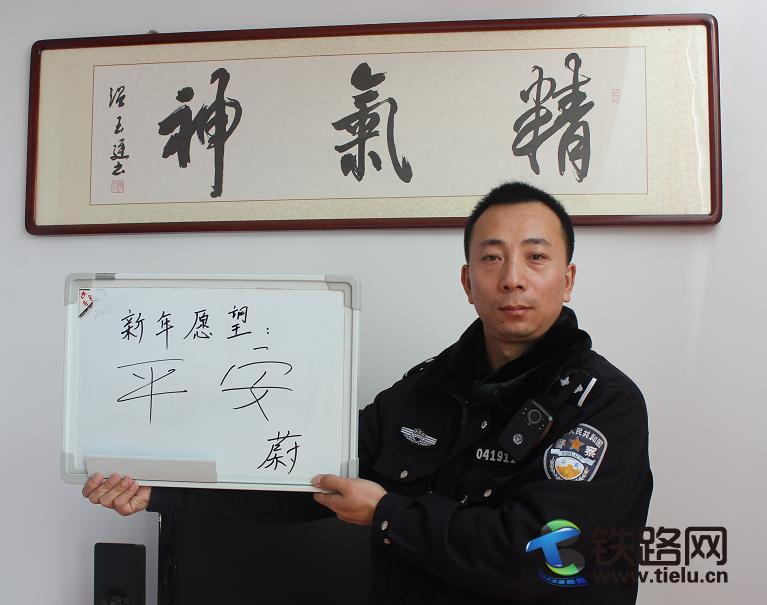 精氣神
新年愿望：
平安
蔚
人民共和国
警察
铁路网
www.tielu.cn